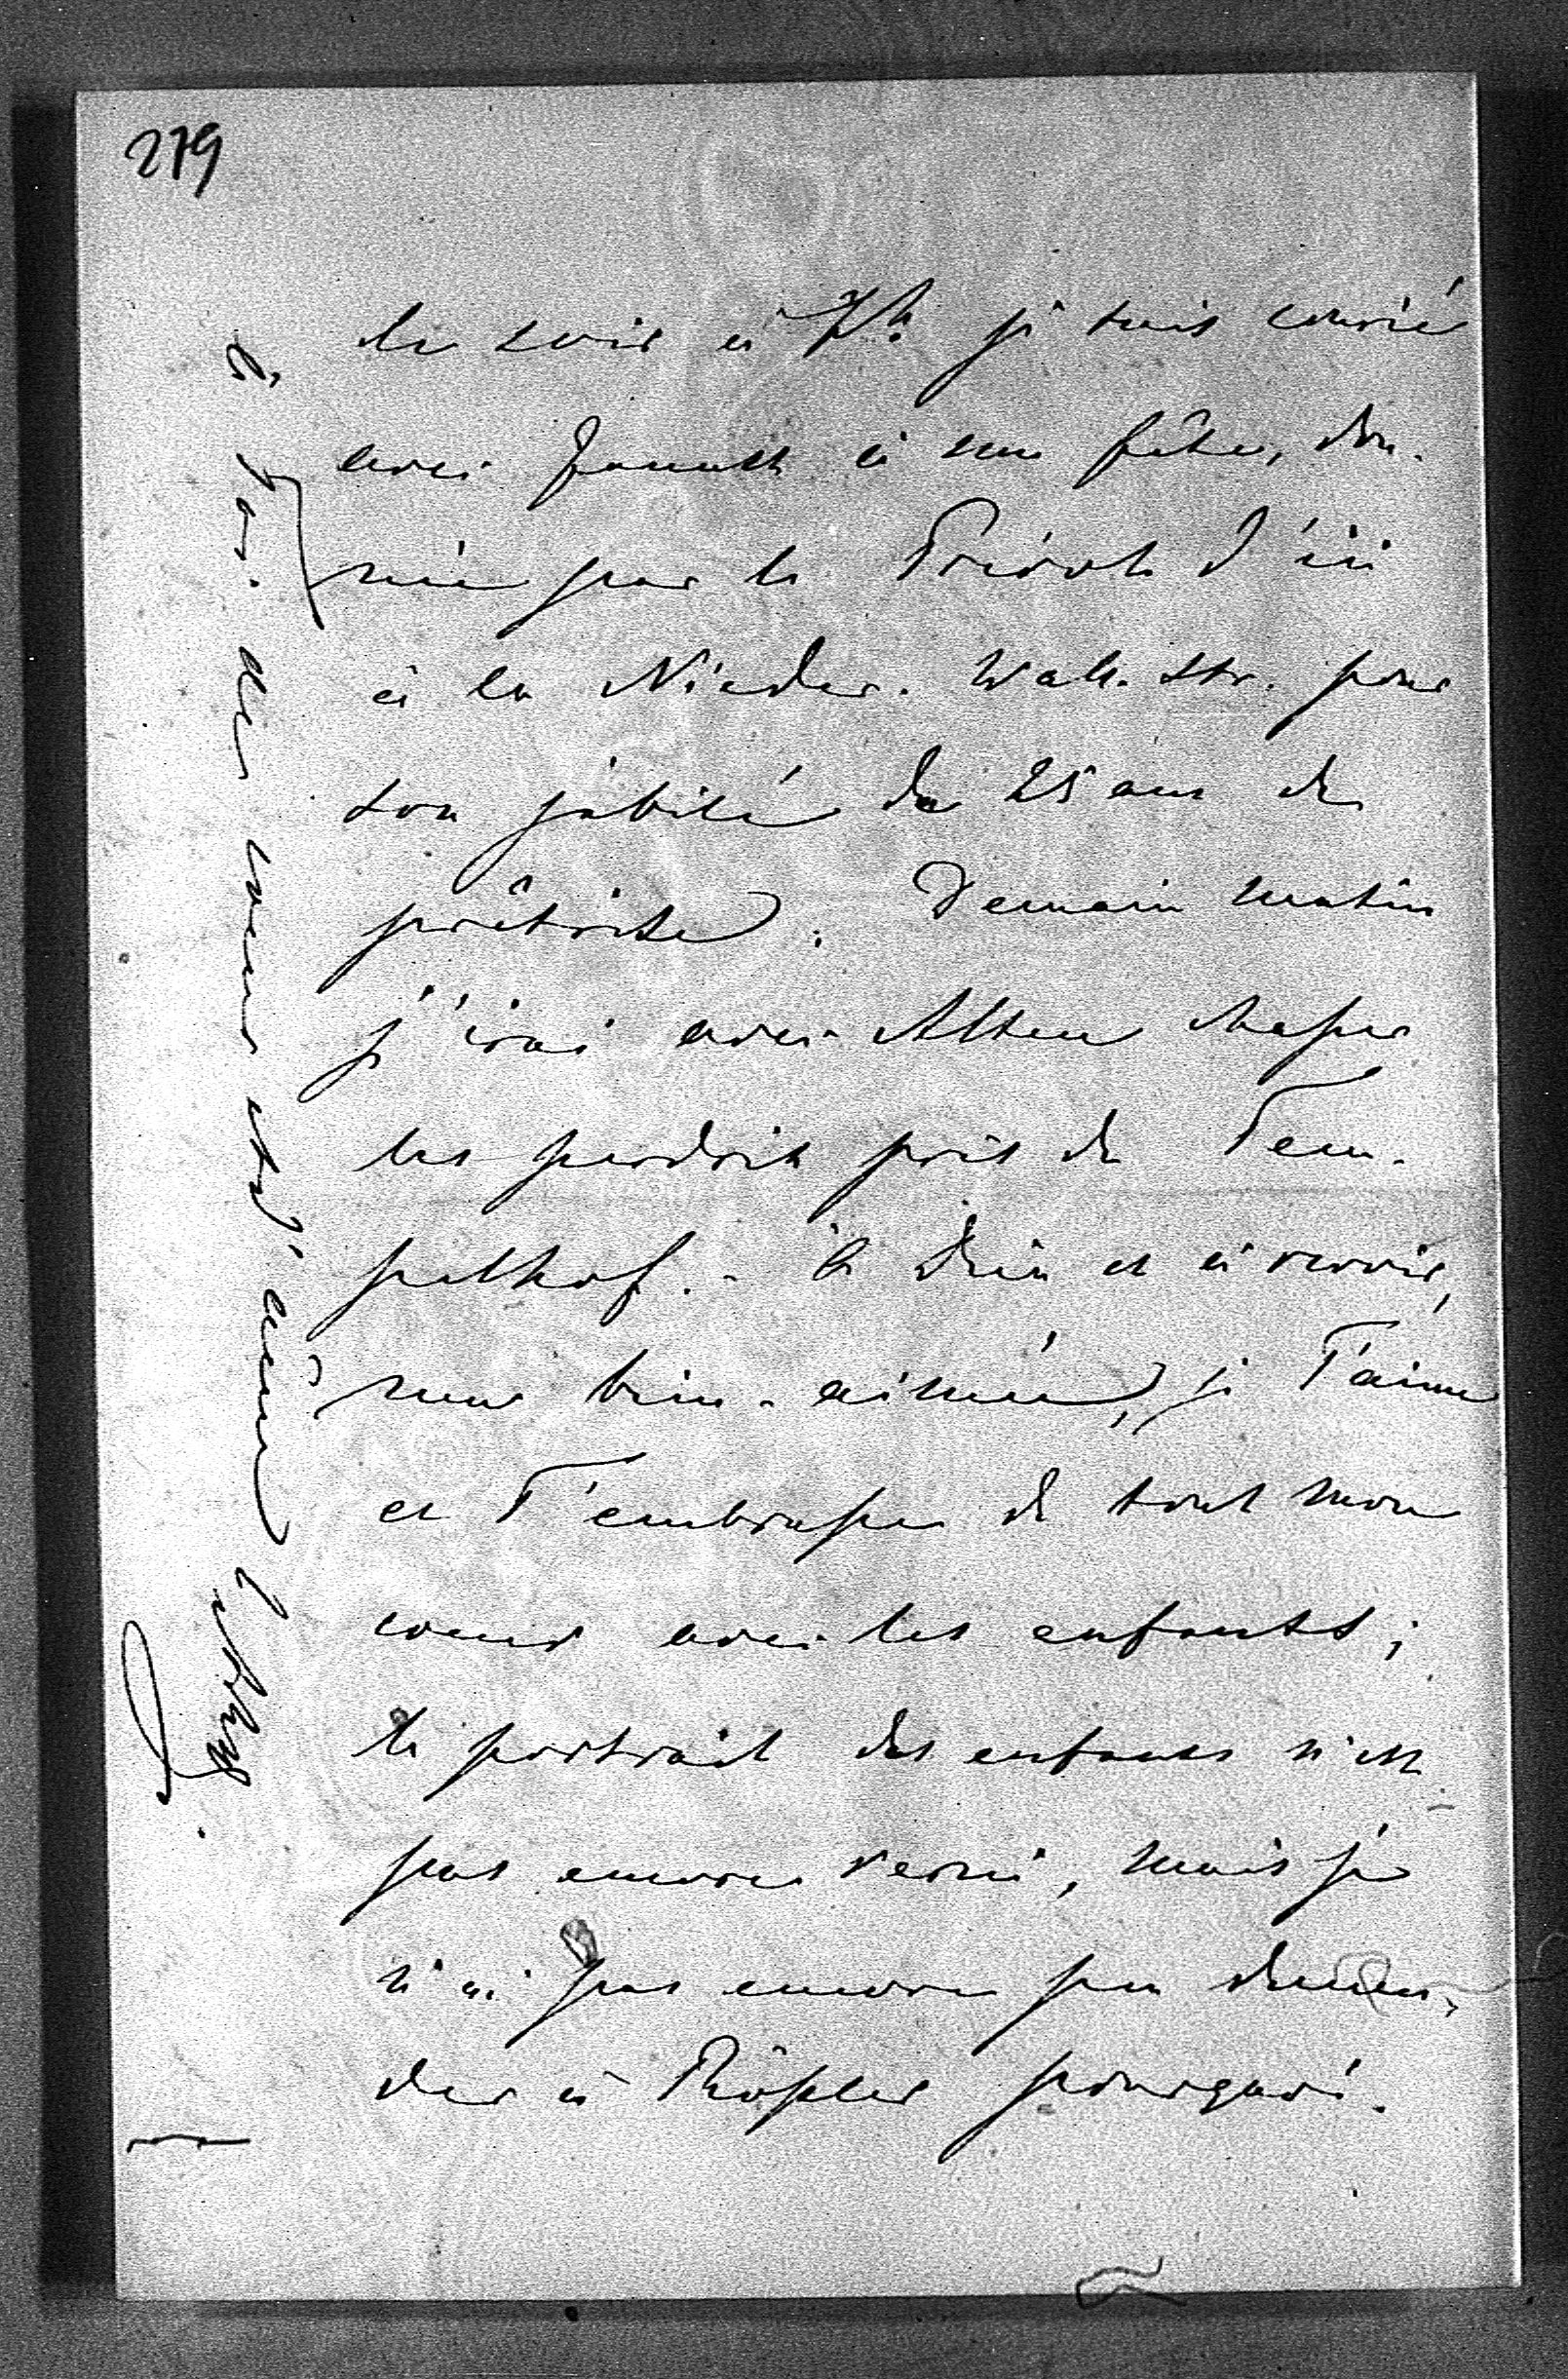 279
le soir à 7h. je suis convié
avec à une fête, don-
née par le Prévôt d'ici
à la Nieder-Wall-Str. pour
son jubilé de 25 ans de
prêtrise. Demain matin
j'irai avec Alten chasser
les perdrix près de Tem-
pelhof. - à Dieu et à revoir,
mon bien-aimée, je T'aime
et T'embrasse de tout mon
coeur avec les enfants;
le portrait des enfants n'est
pas encore verni, mais je
n'ai pas encore pu deman-
der à Rössler pourquoi.
à Toi de coeur et d'âme